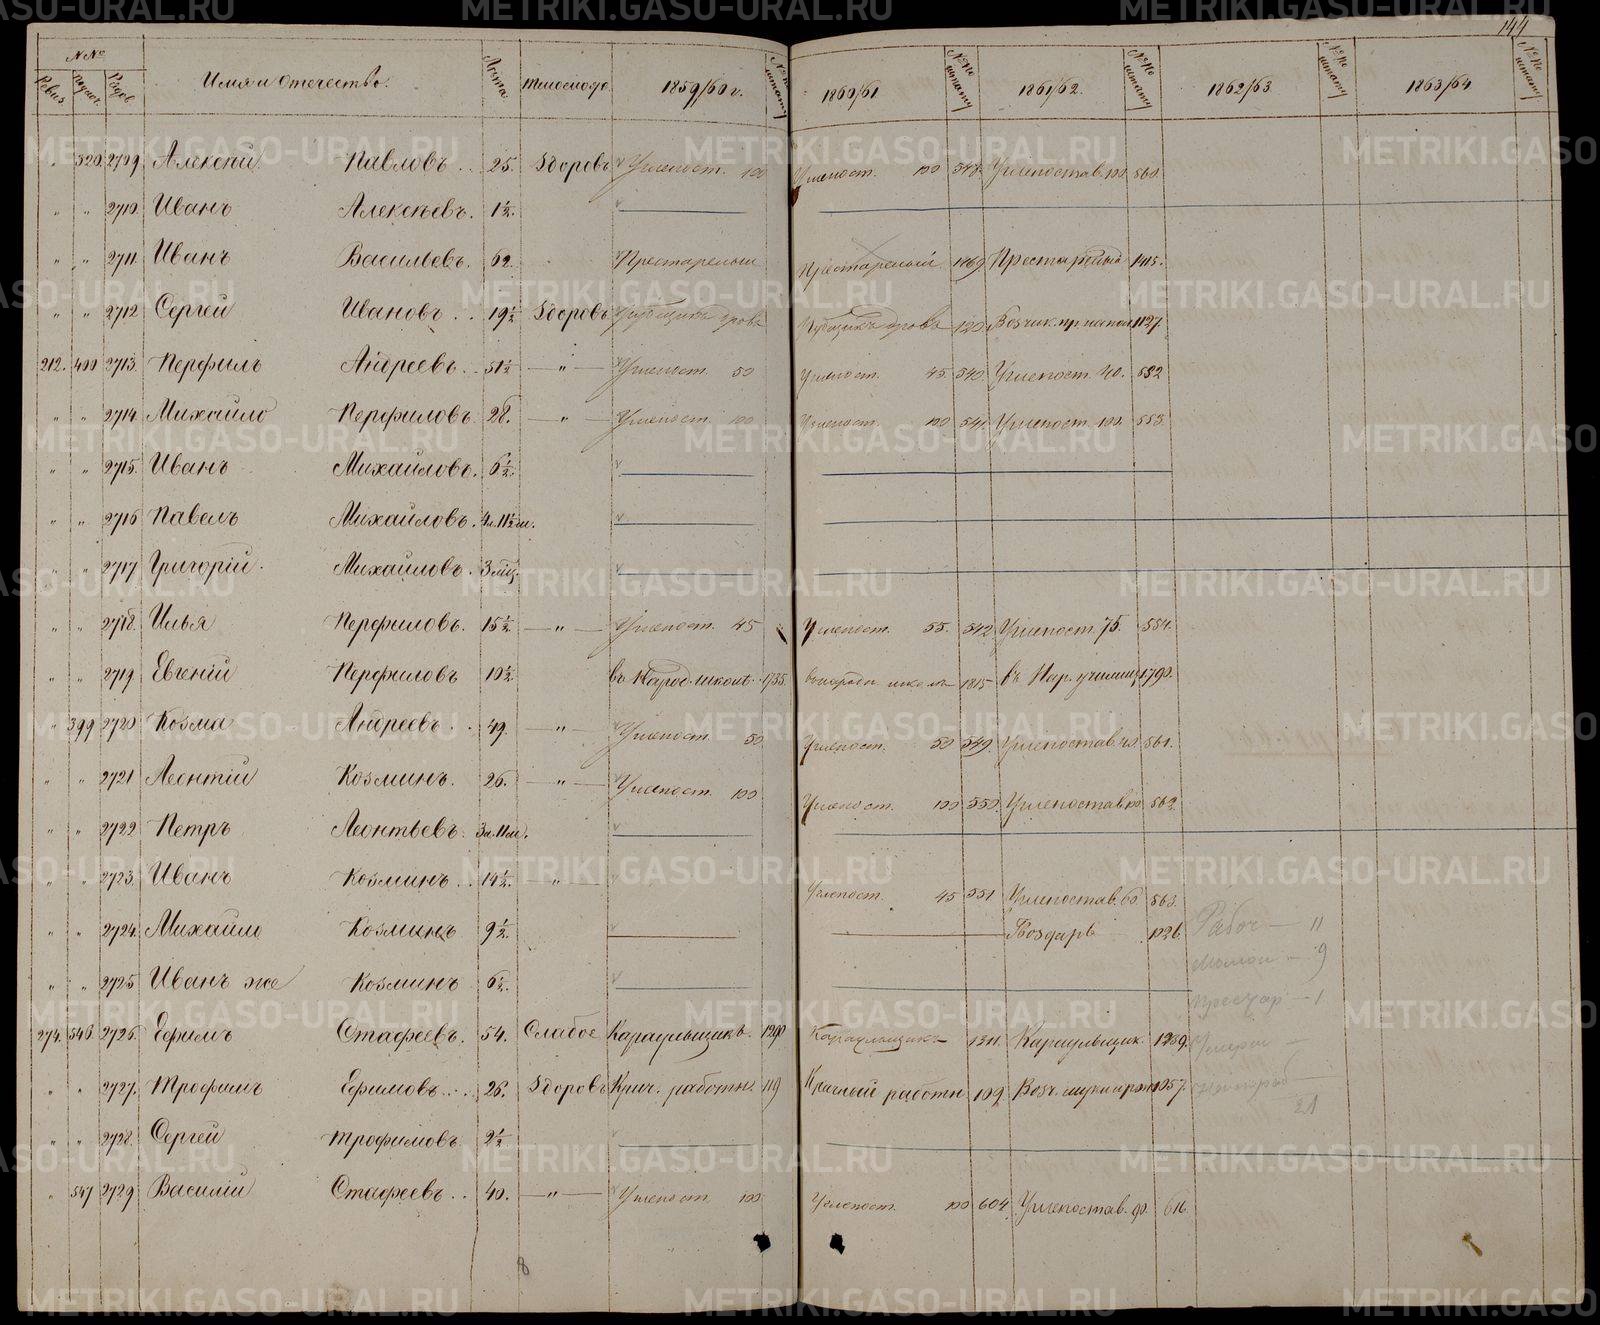 144
№№ Имя и Отечество. Лѣта Тѣлосложе. 1859/60 г. 1860/61 1861/62. 1862/63 1863/64
" 520 2709 Алексѣй Павловъ.. 25. Здоровъ Углепост. 100 Углепост. 100 548. Углепостав. 100 560.
" " 2710. Иванъ Алексѣевъ. 1½.
" " 2711. Иванъ Васильевъ. 62. Престарелый Престарелый 1469 Престарелый 1415.
" " 2712 Сергей Ивановъ.. 19½ Здоровъ Рубщикъ дровъ Рубщикъ дровъ 120 1127.
212. 400 2713. Перфилъ Андреевъ.. 51½ " Углепост. 50 Углепост. 45. 540. Углепост. 40. 552
" " 2714. Михайло Перфиловъ. 28. " Углепост. 100 Углепост. 100 541 Углепост. 100. 553.
" " 2715. Иванъ Михайловъ. 6½.
" " 2716 Павелъ Михайловъ. 4л. 11½ м.
" " 2717 Григорій. Михайловъ. 3 мѣс.
" " 2718. Илья Перфиловъ. 15½ " Углепост. 45 Углепост. 55. 542 Углепост. 75. 554.
" " 2719. Евгеній Перфиловъ 10½ въ Народ. школѣ. 1735. въ народн. школѣ 1815 въ Нар. училищ. 1790.
" 399 2720 Козма Андреевъ.. 49. " Углепост. 50 Углепост. 50 549. Углепостав. 40. 561.
" " 2721 Леонтій Козминъ. 26. " Углепост. 100 Углепост. 100 550. Углепостав. 100 562.
" " 2722 Петръ Леонтьевъ. 3л. 11м.
" " 2723. Иванъ Козминъ.. 14½. " Углепост. 45 551 Углепостав. 60 563.
" " 2724. Михайло Козминъ 9½. 1026. Рабоч — 11
Малол — 9
" " 2725 Иванъ же Козминъ 6½.
Престар — 1
274. 546. 2726. Ефимъ Стафеевъ. 54. Слабое Караульщикъ. 1290 Караульщикъ 1311. Караульщик. 1289.
" " 2727. Трофимъ Ефимовъ... 26. Здоровъ Крич. работн. 119 Кричный работн 109. 1057.
21
" " 2728. Сергей Трофимовъ. 2½.
" 547 2729 Василій Стафеевъ.. 40. " Углепост. 100. Углепост. 100 604 Углепостав. 90. 616.
8
METRIKI.GASO-URAL.RU